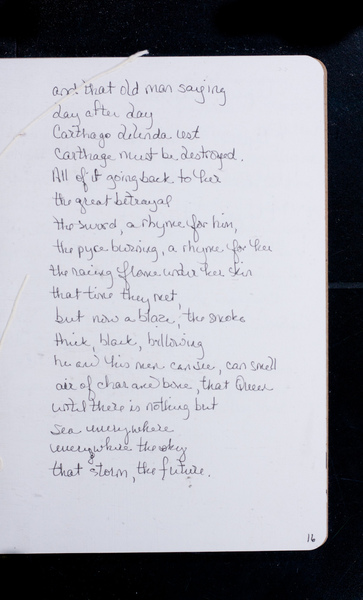 and that old man saying
day after day
Carthago delenda est
Carthage must be destroyed.
All of it going back to her
the great betrayal
the sword, a rhyme for him,
the pyre burning, a rhyme for her
the racing flame under her skin
that time they met,
but now a blaze, the smoke
thick, black, billowing
he and his men can see, can smell
air of char and bone, that Queen
until there is nothing but
sea everywhere
everywhere the sky
that storm, the future.
16